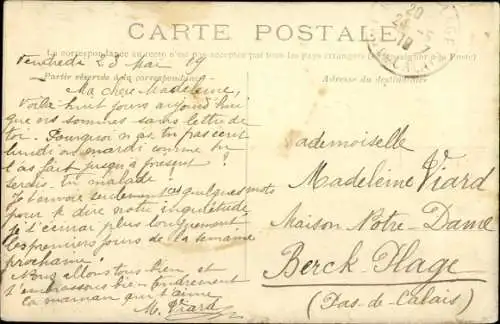 CARTE POSTALE
La correspondance au recto n'est pas acceptée par tous les pays étrangers à la Poste)
Vendredi 23 Mai 19
Partie réservée à la correspondance
Adresse du destinataire
Ma chère Madeleine,
Voilà huit jours aujourd'hui
que nous sommes sans lettre de
toi. Pourquoi n'as-tu pas écrit
lundi ou mardi comme tu
l'as fait jusqu'à présent ?
Serais-tu malade ?
Je t'envoie seulement ces quelques mots
pour te dire notre inquiétude,
je t'écrirai plus longuement
les premiers jours de la semaine
prochaine !
Nous allons tous bien et
t'embrassons bien tendrement
ta maman qui t'aime
M. Viard
ademoiselle
Madeleine Viard
Maison Notre-Dame
Berck-Plage
(Pas-de-Calais)